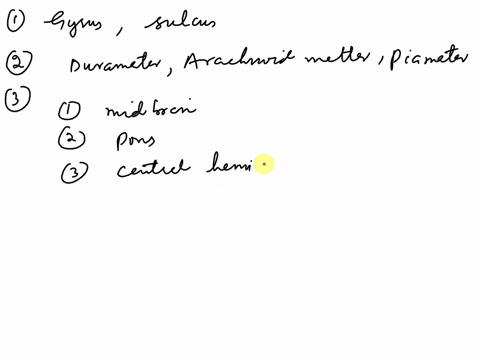 ① Gyrus, sulcus
② Durameter, Arachnoid metter, Piameter
③
① midbrain
② pons
③ central hemi